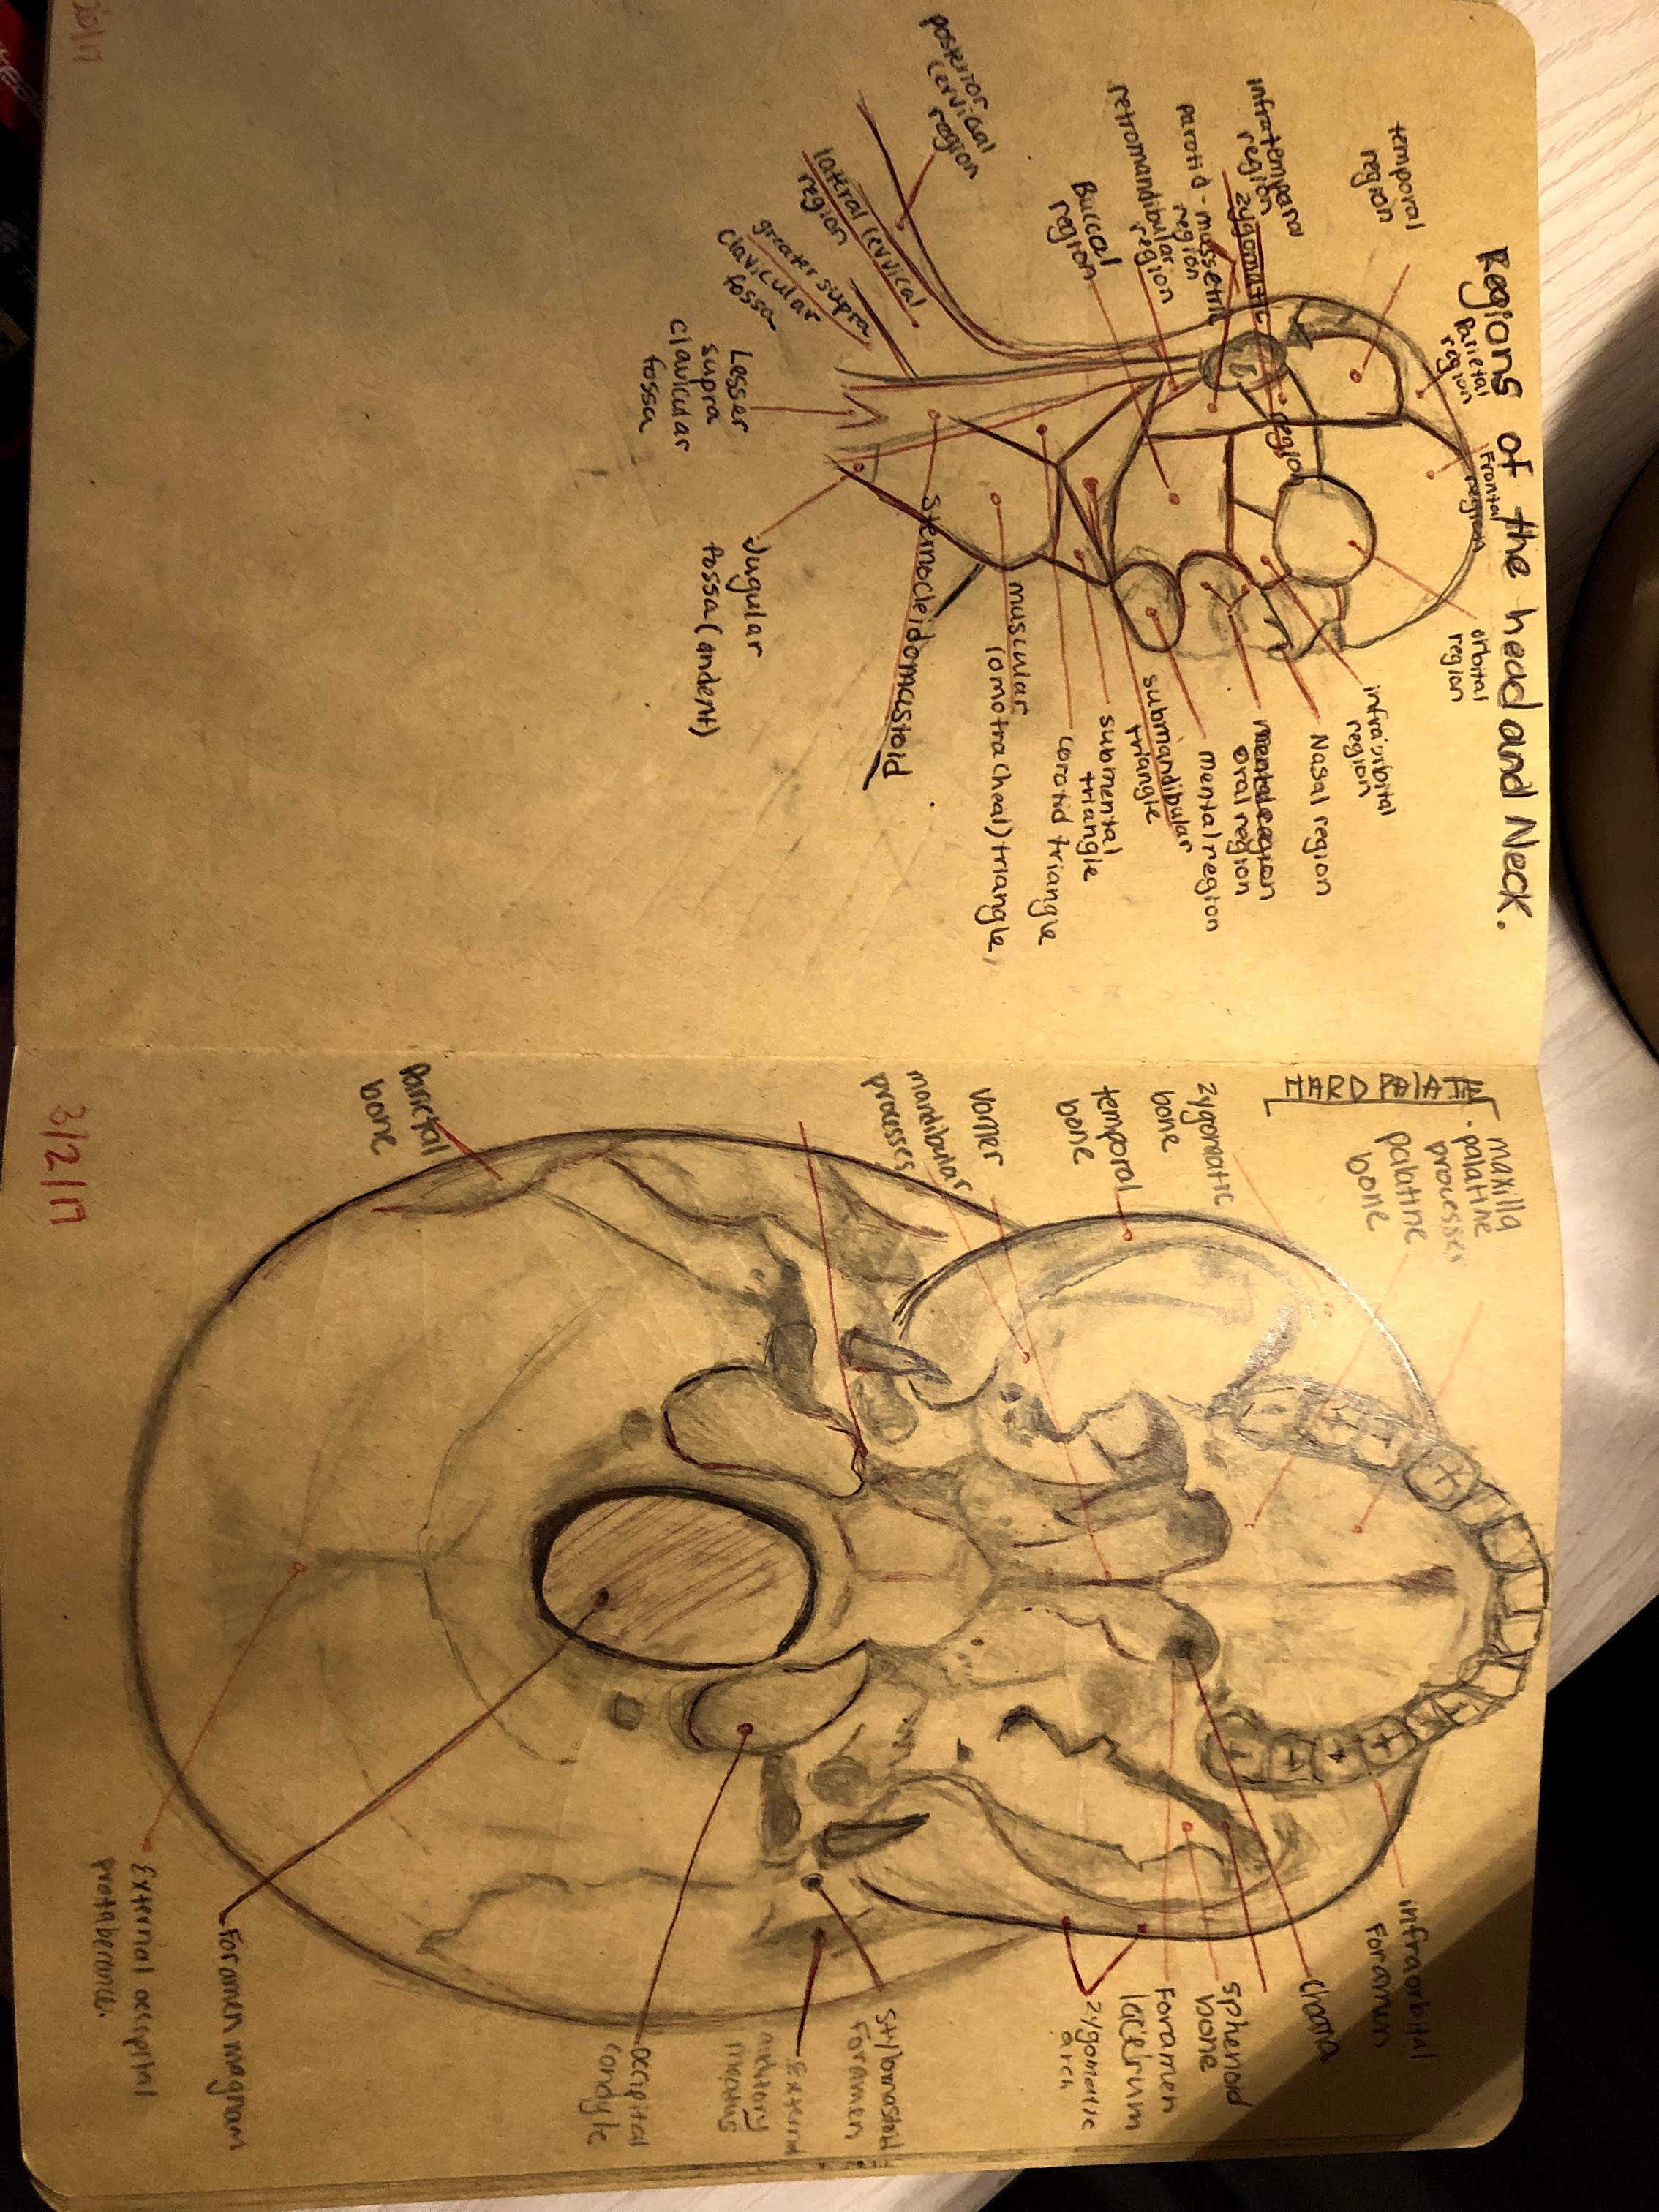 Regions of the head and Neck.
Parietal
region
Frontal
region
orbital
region
temporal
region
infraorbital
region
Nasal region
infratemporal
region
zygomatic
region
mental region
oral region
parotid-massetric
region
mental region
retromandibular
region
submandibular
triangle
Buccal
region
submental
triangle
corotid triangle
muscular
(omotracheal) triangle,
posterior
cervical
region
Sternocleidomastoid
lateral cervical
region
greater supra
clavicular
fossa
Lesser
supra
clavicular
fossa
Jugular
fossa (andent)
20/17
HARD PALATE
maxilla
- palatine
processes
palatine
bone
infraorbital
Foramen
choana
zygomatic
bone
sphenoid
bone
Foramen
lacerum
temporal
bone
zygomatic
arch
Vomer
mandibular
processes
Stylomastoid
Foramen
External
auditory
meatus
occipital
condyle
Parietal
bone
Foramen magnam
External occipital
protaberance.
3/2/17